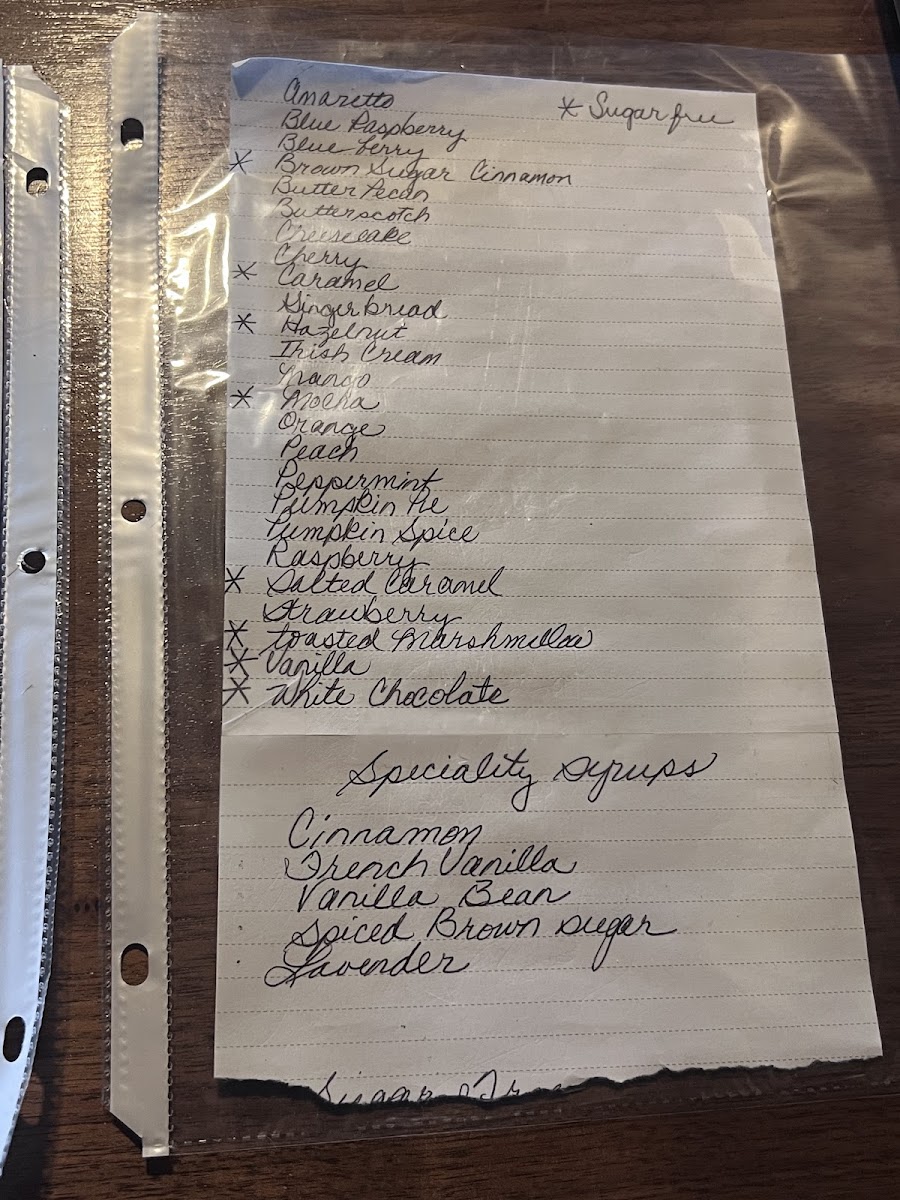 * Sugar free
Amaretto
Blue Raspberry
Blueberry
* Brown Sugar Cinnamon
Butter Pecan
Butterscotch
Cheesecake
Cherry
* Caramel
Gingerbread
* Hazelnut
Irish Cream
Mango
* Mocha
Orange
Peach
Peppermint
Pumpkin Pie
Pumpkin Spice
Raspberry
* Salted Caramel
Strawberry
* toasted Marshmellow
* Vanilla
* White Chocolate
Speciality syrups
Cinnamon
French Vanilla
Vanilla Bean
Spiced Brown sugar
Lavender
Sugar Free